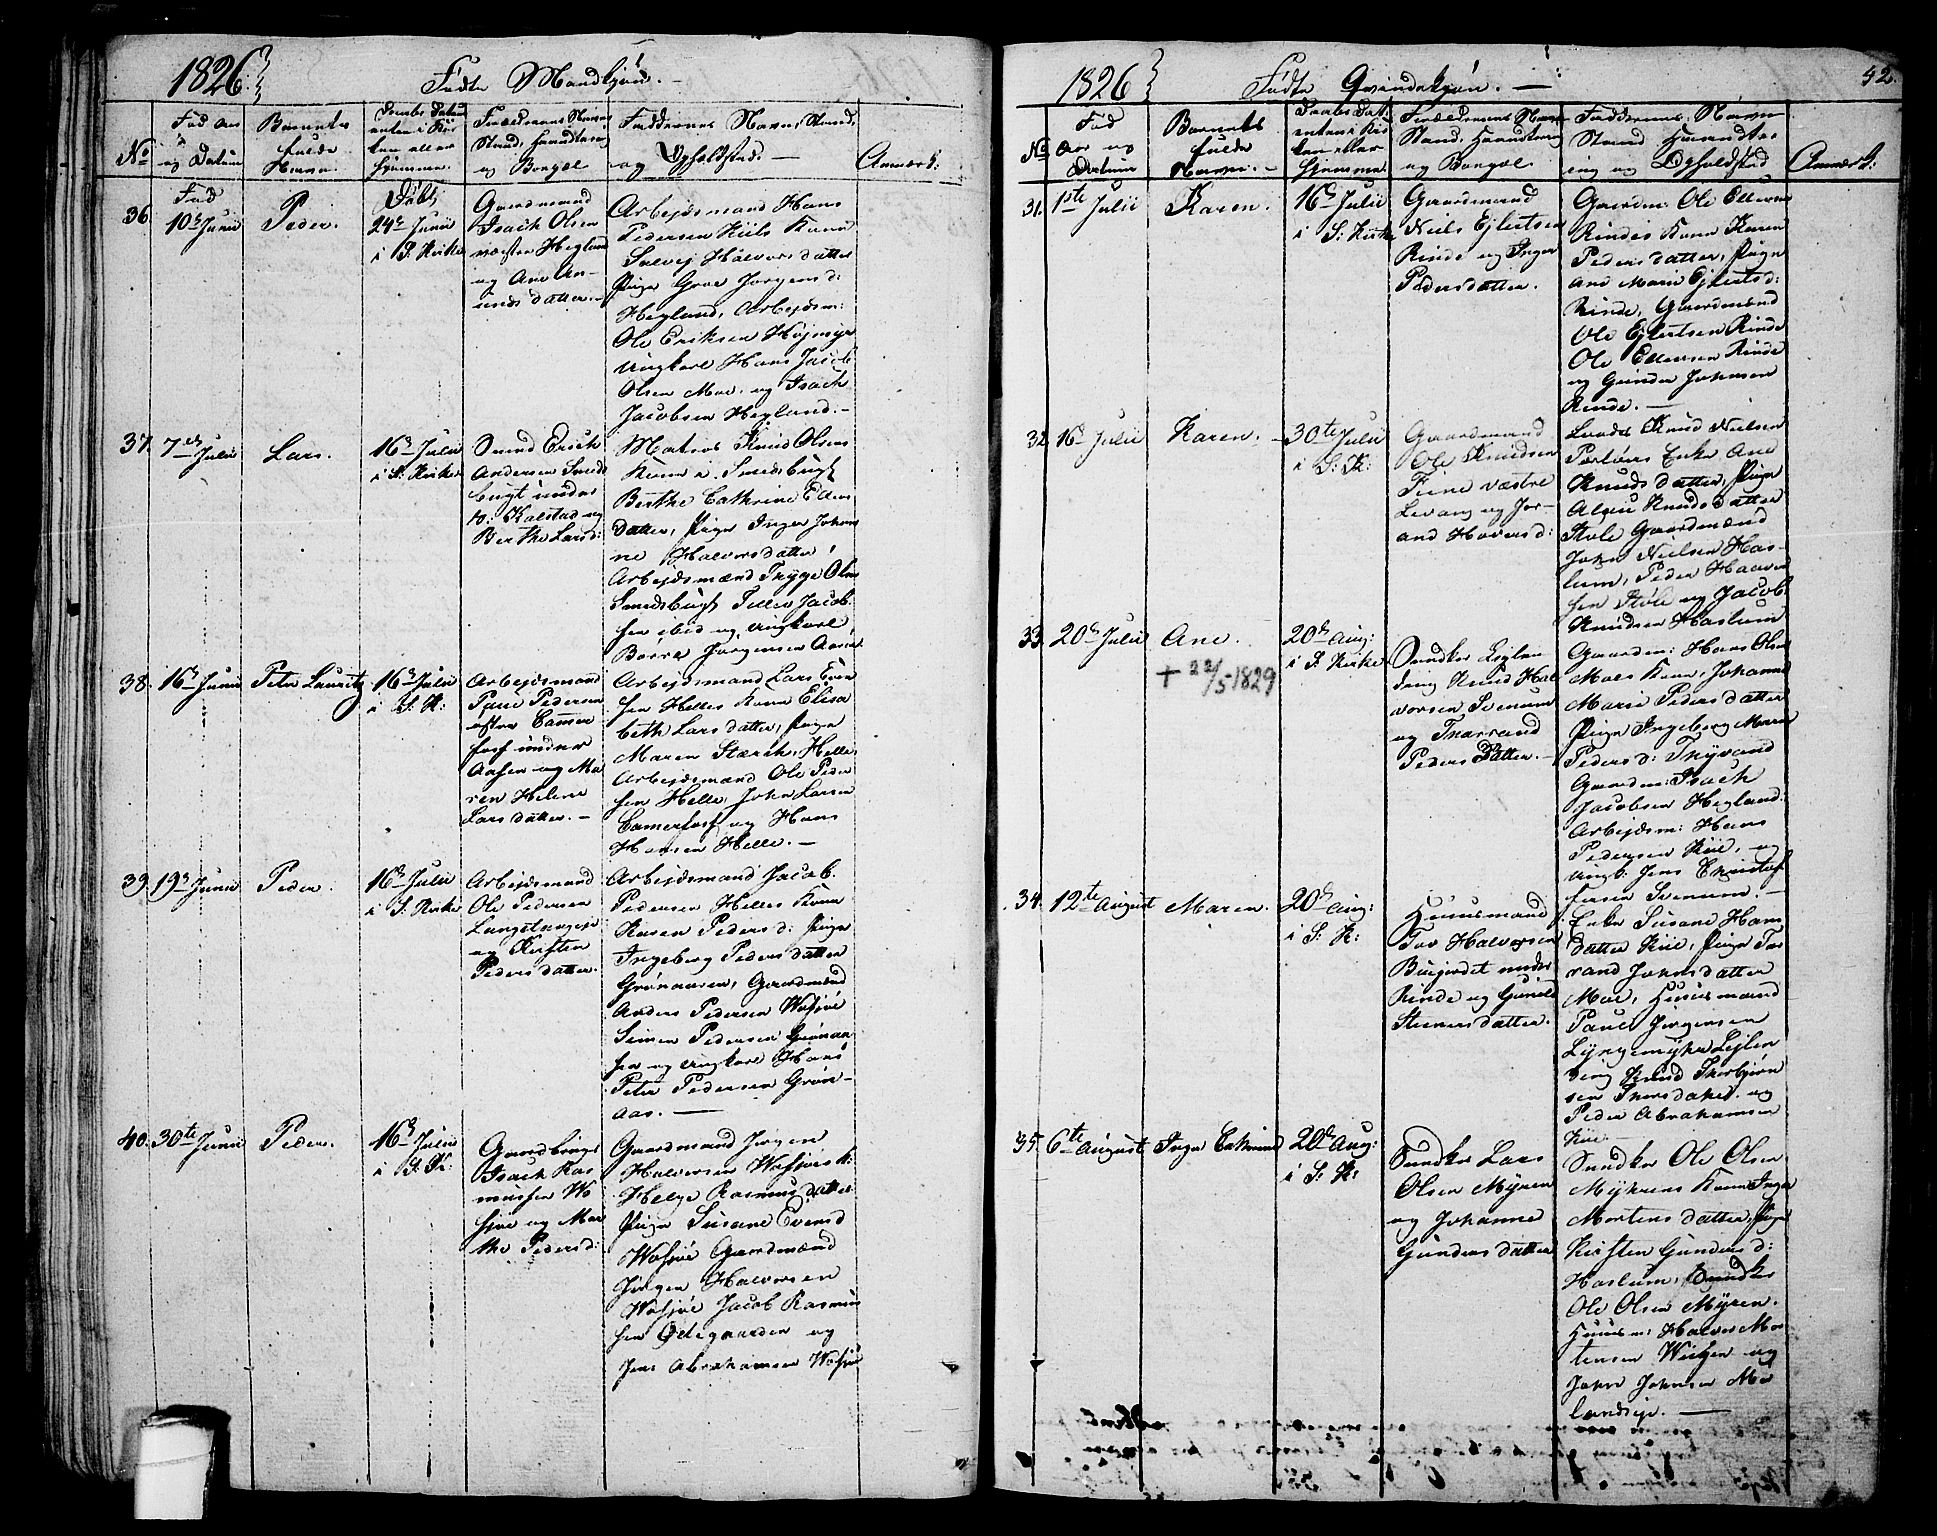 1826.
Fødte Mandkjøn. -
No
Fød Aar og Datum
Barnets fulde Navn.
Daabs Datum enten i Kirken eller Hjemme
Forældrenes Navne Stand, Haandtering og Bopæl
Faddernes Navn, Stand, og Opholdsted. -
Anmærk:
36.
Fød
10de Junii
Peder.
Døbt
24de Junii
i S. Kirke
Gaardmand
Isach Olsen
Hegland
og Ane An-
unds datter. -
Arbejdsmand Hans
Pedersen Kiils Kone
Salvej Halvorsdatter
Pige Groe Jørgensd:
Hegland, Arbejdsm:
Ole Eriksen Højmyr
Ungkarl Hans Jacob
Olsen Moe, og Isach
Jacobsen Hegland. -
37.
7de Julii
Lars.
16de Julii
i S. Kirke
Smed Erich
Andersen Smeds
bugt under
Kalstad og
Berthe Larsd:
Matros Knud Olsens
Kone i Smedsbugt
Berthe Cathrine
datter, Pige Inger Johan
ne Halvorsdatter
Arbejdsmænd Tryge Olsen
Smedsbugt Peller Jacob
sen ibid og Ungkarl
Børre Jørgensen
38.
16de Junii
Peter Lauritz
16de Julii
i S. K:
Arbejdsmand
Paul Pedersen
under
Aasen og Ma
ren Helene
Larsdatter. -
Arbejdsmand Lars Even
sen Helles Kone Elisa
beth Larsdatter, Pige
Maren Helle,
Arbejdsmænd Ole Peder
sen Helle, John Larsen
og Hans
Hansen Helle. -
39.
19de Junii
Peder.
16de Julii
i S. Kirke
Arbejdsmand
Ole Pedersen
Langtangen
og Kirsten
Pedersdatter.
Arbejdsmand Jacob
Pedersen Helles Kone
Karen Pedersd: Pige
Ingeborg Pedersdatter
Grønaasen, Gaardmænd
Anders Pedersen Wafsjøe
Simen Pedersen Grønaa
sen og Ungkarl Hans
Peter Pedersen Grøn-
aas. -
40.
30te Junii
Peder.
16de Julii
i S. K:
Gaardbruger
Isach Ras
mussen Wa
fsjøe og Mar
the Pedersd:
Gaardmand Jørgen
Halvorsen Wafsjøes K:
Helge Rasmusdatter
Pige Susane Evensd
Wafsjøe Gaardmænd
Jørgen Halvorsen
Wafsjøe Jacob Rasmus
sen Ødegaarden og
Jens Abrahamsen Wafsjøe
1826
Fødte Qvindekjøn. -
42.
No
Fød Aar og Datum
Barnets fulde Navn. -
Daabs Datum enten i Kirken eller Hjemme
Forældrenes Navn Stand, Haandtering og Bopæl
Faddernes Navn Stand Haandtering og Opholdsted
Anmærk:
31.
1ste Julii
Karen.
16de Julii
i S: Kirke
Gaardmand
Niels Ejlertsen
Rinde og Inger
Pedersdatter.
Gaardm: Ole Ellevsen
Rindes Kone Karen
Pedersdatter, Pige
Ane Marie Ejlertsd:
Rinde, Gaardmænd
Ole Ejlertsen Rinde
Ole Ellevsen Rinde
og Gunder Johnsen
Rinde. -
32.
16de Julii
Karen.
30te Julii
i S: K:
Gaardmand
Ole Knudsen
Fiene vestre
Levang og Jor-
and Hoversd:
Knud Nielsen
Enke Ane
Knudsdatter, Pige
Knudsdatter
Støle Gaardmænd
John Nielsen Has-
lum, Peder Haaven
sen Støle og Jacob
Knudsen Haslum
33.
20de Julii
Ane.
+ 22/5-1829
20de Aug:
i S. Kirke
Lejlen
ding Knud Hal
vorsen Siemum
og Tharrand
Pedersdatter. -
Gaardm: Hans Olsen
Moes Kone, Johanne
Marie Pedersdatter
Pige Ingeborg Maren
Pedersd:
Gaardm: Isach
Jacobsen Hegland.
Arbejdsm: Hans
Pedersen Kiil, og
Ungk: Jens Christof
fersen Siemum -
34.
12te August
Maren.
20de Aug:
i S. K:
Huusmand
Tov Halvorsen
under
Rinde og Gunild
Steenersdatter.
Enke Susane Hans
datter Kiil, Pige Tar
rand Johnsdatter
Moe, Huusmand
Paul Jørgensen
Lyngmyhr Lejlen
ding Knud Thorbjørn
sen Thorsdahl. og
Peder Abrahamsen
Kiil -
35.
6te August
Inger Cathrine
20de Aug:
i S. K:
Lars
Olsen Myren
og Johanne
Gundersdatter
Ole Olsen
Myhrens Kone Inger
Mortensdatter, Pige
Kirsten Gundersd:
Haslum,
Ole Olsen Myren.
Huusm: Halvor Mor
tensen Wiigen og
John Johnsen
. -